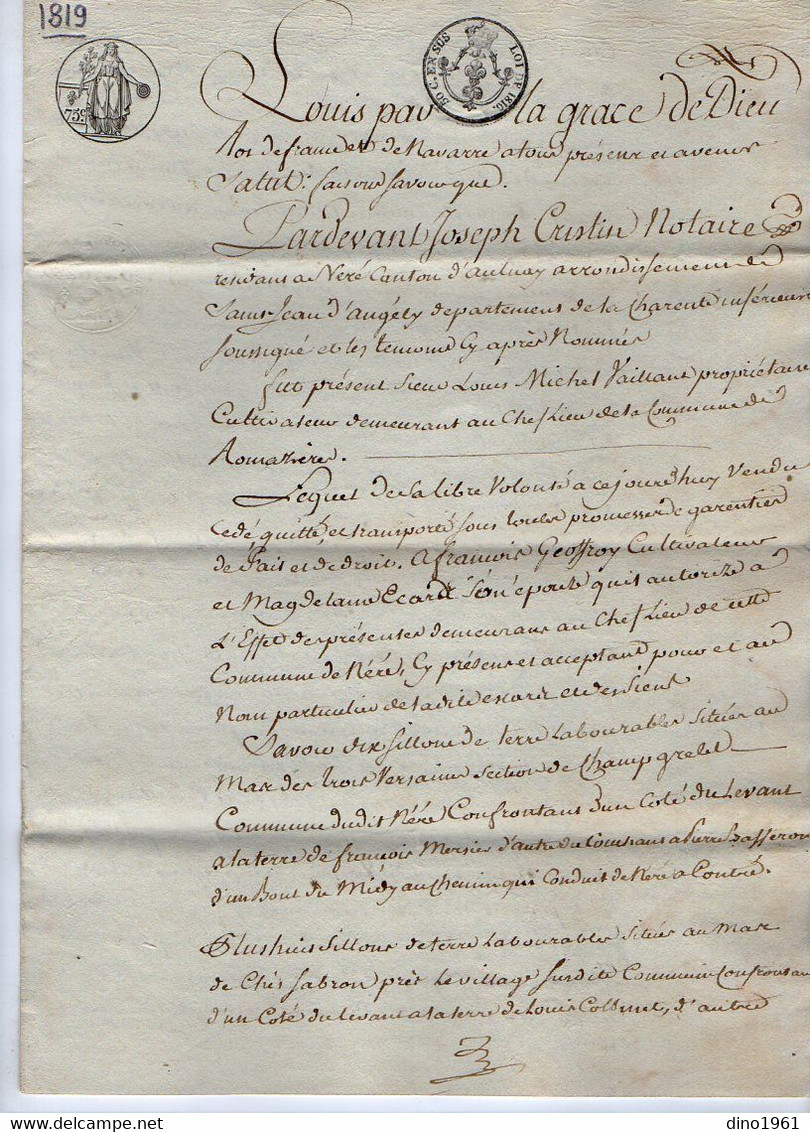 1819
75c
50 C. EN SUS LOI DE 1816
Louis par la grace de Dieu
Roi de france et de Navarre a tous présent et avenir
Salut: faisons savoir que.
Pardevant Joseph Cristin Notaire
residant a Néré Canton d'aulnay arrondissement de
Saint-Jean d'angély departement de la Charente inférieure
soussigné et les temoins Cy après Nommés
fut présent Sieur Louis Michel Vaillant propriétaire
Cultivateur demeurant au Chef Lieu de la Commune de
Romazière.
Lequel de sa libre Volonté a ce jourd'huy Vendu
Cedé quitté et transporté sous toutes promesses de garenties
de fait et de droit. A francois Geoffroy Cultivateur
et Magdelaine Ecard son épouse qu'il autorize a
L'Effet des présentes demeurans au Chef Lieu de cette
Commune de Néré, Cy présens et acceptant pour et au
Nom particulier de ladite Ecard et des siens
Savoir dix sillons de terre Labourables situés au
Mas des trois Versaines section de Champ grelet
Commune dudit Néré Confrontans d'un Coté du Levant
a la terre de francois Mersier d'autre du Couchant a Pierre Basseron
d'un Bout du Midy au Chemin qui Conduit de Néré a Contré.
Plus huit sillons de terre Labourables situés au Mas
de Chés sabron près Le village susdite Commune Confrontant
d'un Coté du levant a la terre de Louis d'autre
dino1961